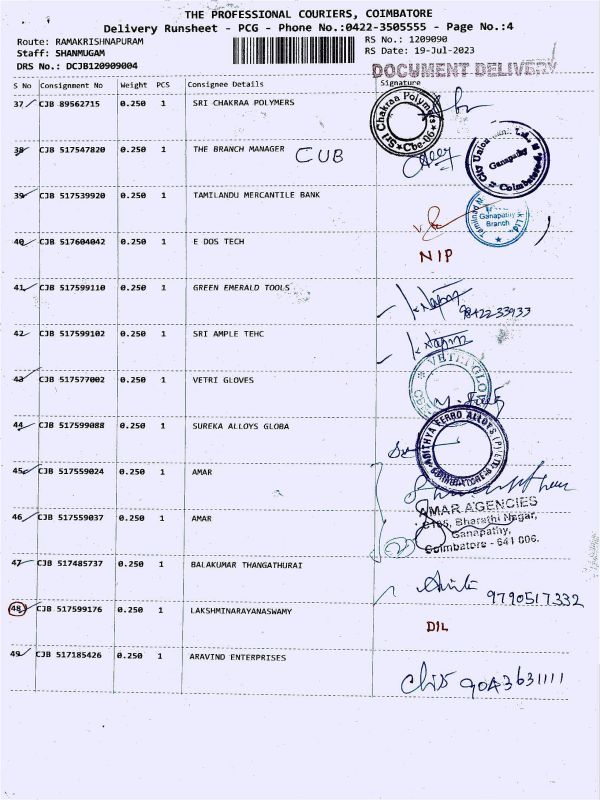 THE PROFESSIONAL COURIERS, COIMBATORE
Delivery Runsheet - PCG - Phone No.:0422-3505555 - Page No.:4
Route: RAMAKRISHNAPURAM RS No.: 1209090
Staff: SHANMUGAM RS Date: 19-Jul-2023
DRS No.: DCJB120909004 DOCUMENT DELIVERY
S No Consignment No Weight PCS Consignee Details Signature
37 CJB 89562715 0.250 1 SRI CHAKRAA POLYMERS
Sri Chakraa Polymers Cbe-06
38 CJB 517547820 0.250 1 THE BRANCH MANAGER CUB
City Union Ganapathy Coimbatore
39 CJB 517539920 0.250 1 TAMILANDU MERCANTILE BANK
Ganapathy Branch
40 CJB 517604042 0.250 1 E DOS TECH
NIP
41 CJB 517599110 0.250 1 GREEN EMERALD TOOLS
9842233933
42 CJB 517599102 0.250 1 SRI AMPLE TEHC
43 CJB 517577002 0.250 1 VETRI GLOVES
VETRI GLOV
44 CJB 517599088 0.250 1 SUREKA ALLOYS GLOBA
ADITHYA FERRO ALLOYS (P) LTD COIMBATORE-6
45 CJB 517559024 0.250 1 AMAR
46 CJB 517559037 0.250 1 AMAR
AMAR AGENCIES
Bharathi Nagar,
Ganapathy,
Coimbatore - 641 006.
47 CJB 517485737 0.250 1 BALAKUMAR THANGATHURAI
9790517332
48 CJB 517599176 0.250 1 LAKSHMINARAYANASWAMY
DIL
49 CJB 517185426 0.250 1 ARAVIND ENTERPRISES
9043631111